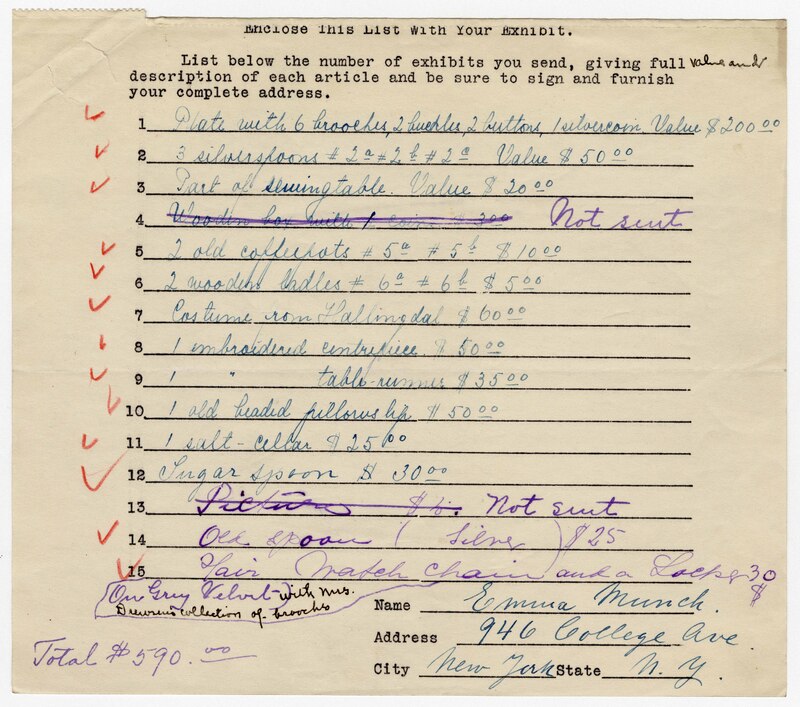 Enclose This List With Your Exhibit.
List below the number of exhibits you send, giving full value and
description of each article and be sure to sign and furnish
your complete address.
1 Plate with 6 brooches, 2 buckles, 2 buttons, 1 silvercoin. Value $200 00
2 3 silverspoons # 2a # 2b # 2c Value $ 50 00
3 Part of sewingtable. Value $ 20 00
4 Wooden box with 1 $ 3 00 Not sent
5 2 old coffeepots # 5a # 5b $ 10 00
6 2 wooden ladles # 6a # 6b $ 5 00
7 Costume from Hallingdal $ 60 00
8 1 embroidered centrepiece $ 50 00
9 1 " table-runner $ 35 00
10 1 old beaded pillowslip $ 50 00
11 1 salt-cellar $ 25 00
12 Sugar spoon $ 30 00
13 Picture $ Not sent
14 Old spoon ( Silver ) $25
15 Hair Watch chain and a Locket 30
On Grey Velvet with Mrs. $
collection of brooches
Name Emma Munch.
Address 946 College Ave.
City New York State N. Y.
Total $590.00